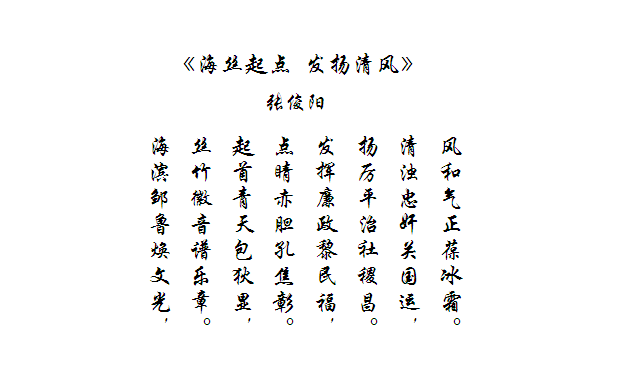 《海丝起点 发扬清风》
张俊阳
海滨邹鲁焕文光，
丝竹徽音谱乐章。
起首青天包狄显，
点睛赤胆孔焦彰。
发挥廉政黎民福，
扬厉平治社稷昌。
清浊忠奸关国运，
风和气正葆冰霜。